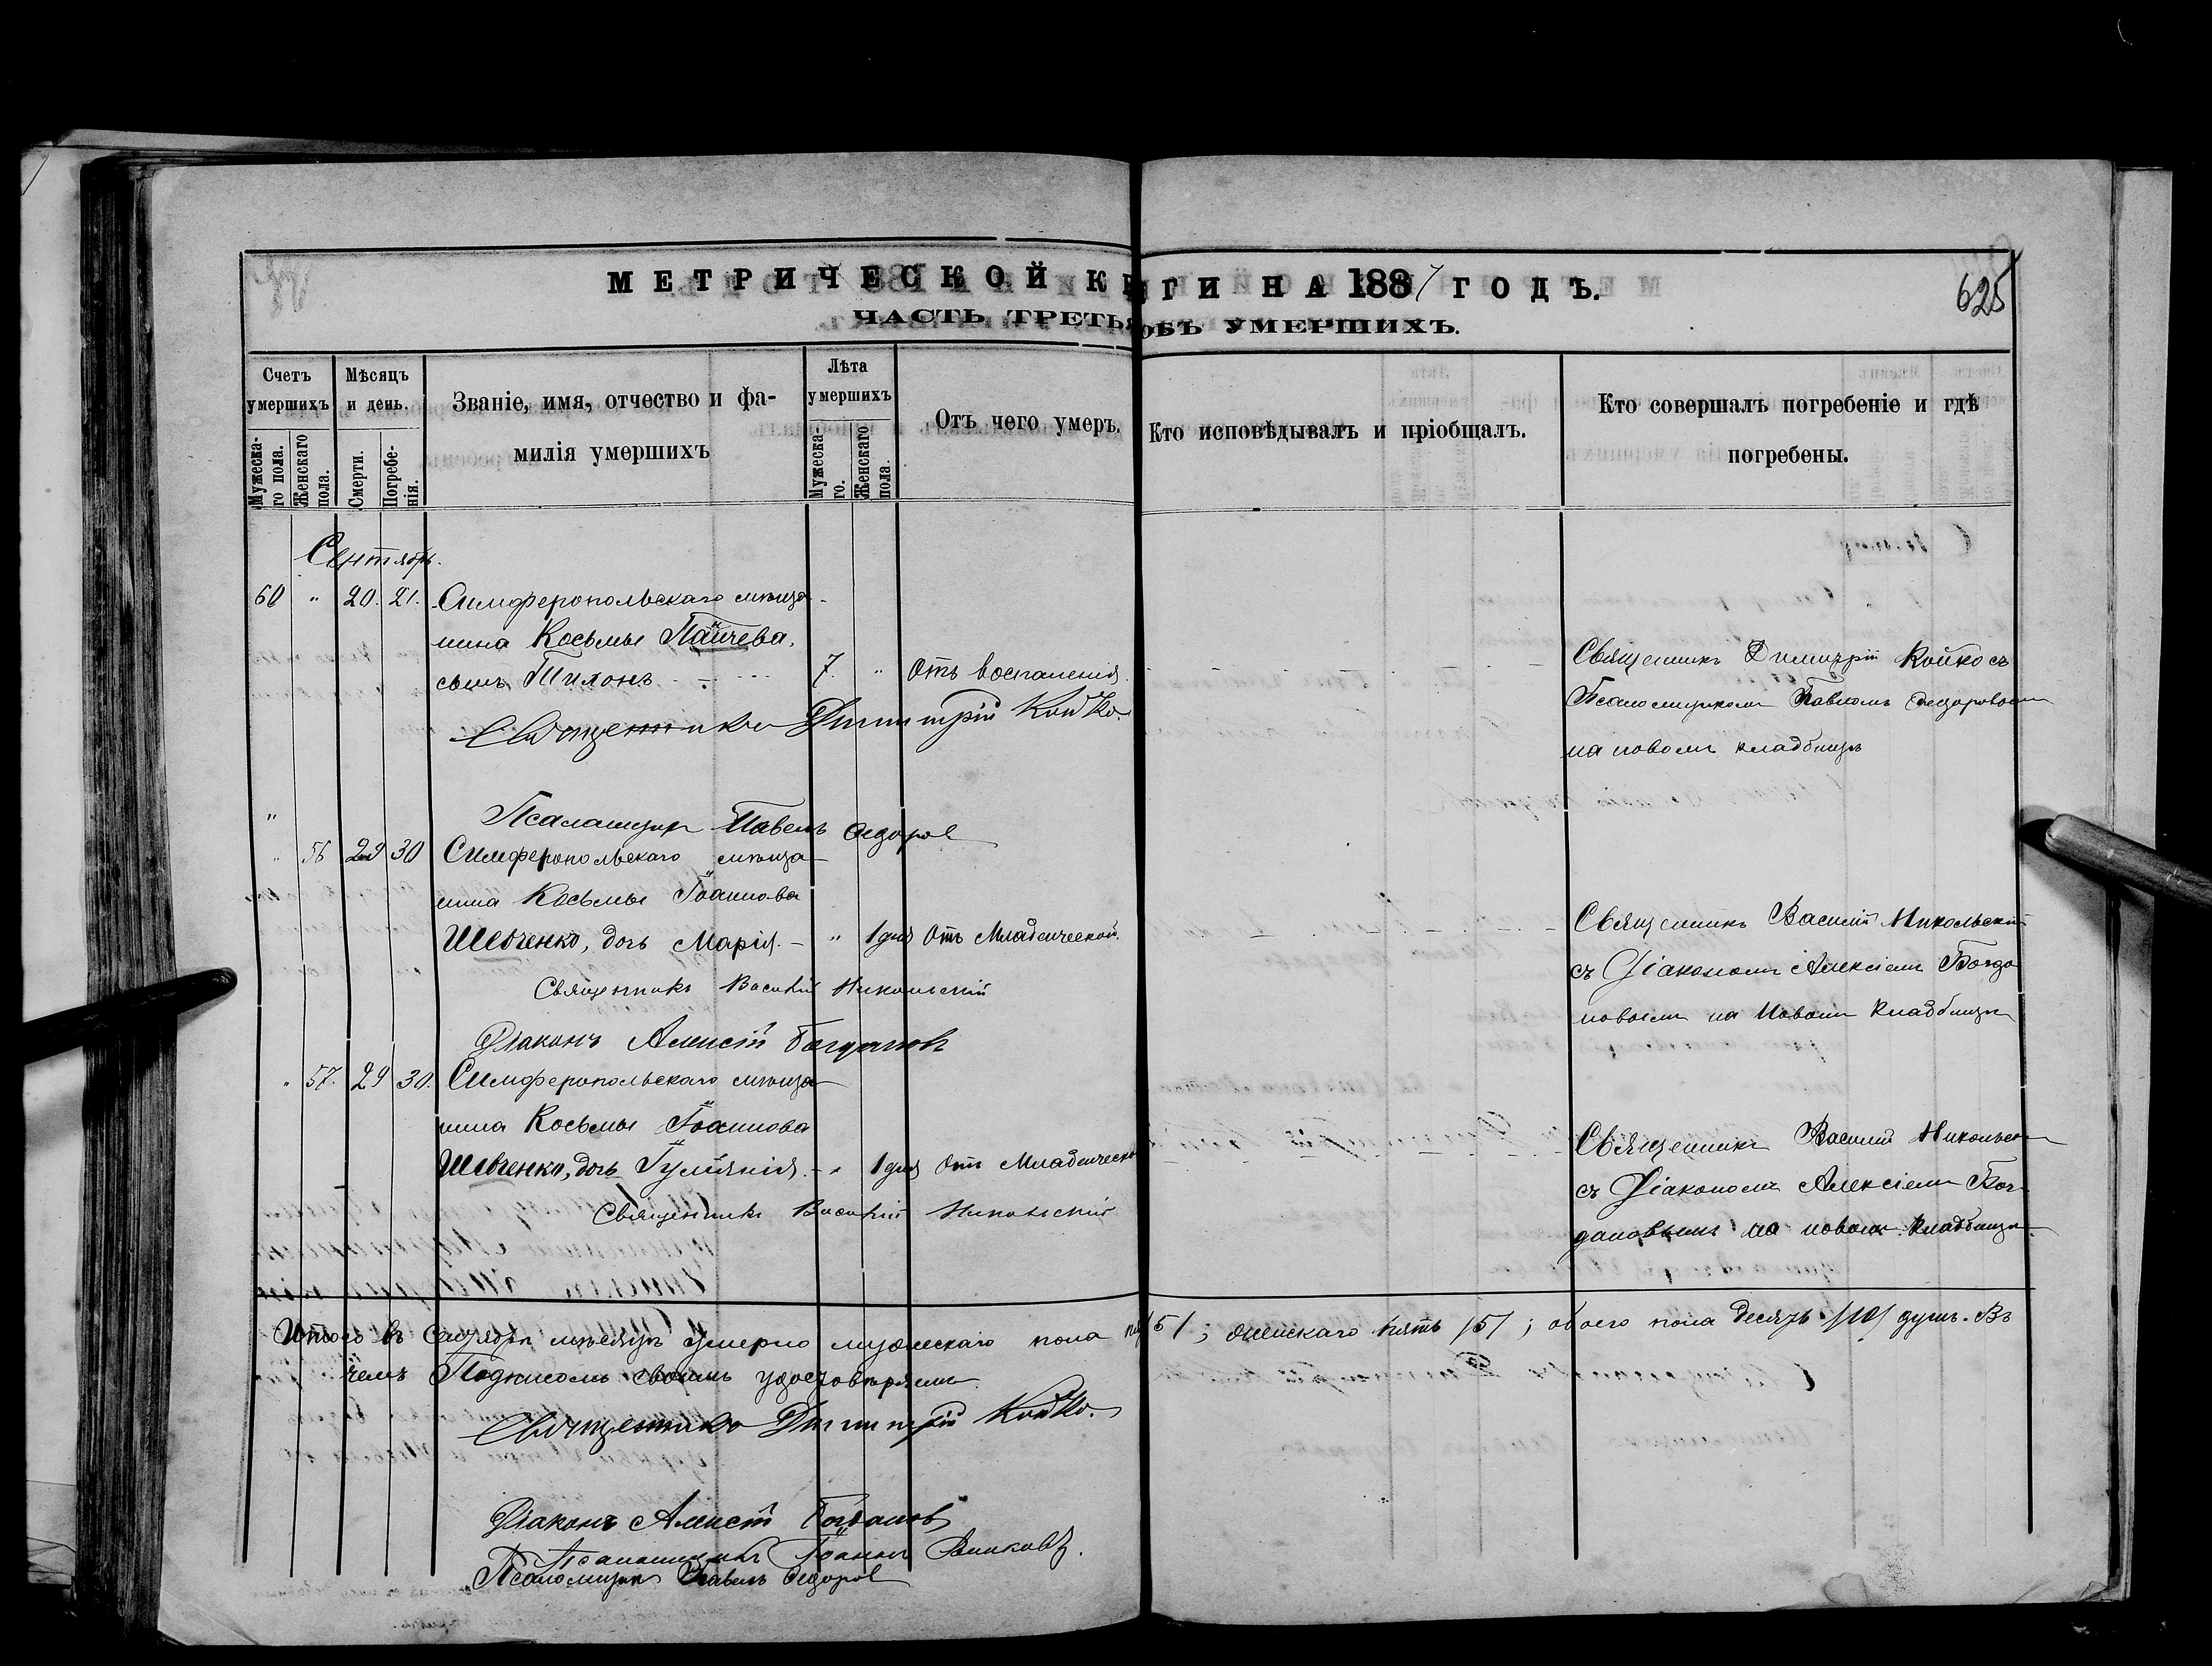 МЕТРИЧЕСКОЙ КНИГИ НА 1887 ГОДЪ.
625
ЧАСТЬ ТРЕТЬЯ ОБЪ УМЕРШИХЪ.
Счетъ умершихъ
Мужеска-го пола.
Женскаго пола.
Мѣсяцъ и день.
Смерти.
Погребе-нія.
Званіе, имя, отчество и фа-
милія умершихъ
Лѣта умершихъ
Мужеска-го.
Женскаго пола.
Отъ чего умеръ.
Кто исповѣдывалъ и пріобщалъ.
Кто совершалъ погребеніе и гдѣ
погребены.
Сентябрь.
60 " 20. 21. Симферопольскаго мѣща-
нина Косьмы
сынъ 7. " Отъ воспаленія.
Священникъ Димитрій Койко съ
Псаломщикомъ Павломъ Ѳедоровымъ
на новомъ кладбищѣ
Священникъ Димитрій Койко.
Псаломщикъ Павелъ Ѳедоровъ
" 56 29 30 Симферопольскаго мѣща-
нина Косьмы Іоаннова
Шевченко, дочь Марія. - " 1 дня Отъ Младенческой.
Священникъ Василій Никольскій
съ Діакономъ Алексіемъ Богда
новымъ на Новомъ кладбищѣ
Священникъ Василій Никольскій
Діаконъ Алексій Богдановъ
" 57. 29 30. Симферопольскаго мѣща-
нина Косьмы Іоаннова
Шевченко, дочь Іуліянія. - " 1 дня Отъ Младенческой
Священникъ Василій Никольскій
съ Діакономъ Алексіемъ Бог-
дановымъ на новомъ кладбищѣ.
Священникъ Василій Никольскій
Итого въ Сентябрѣ мѣсяцѣ умерло мужескаго пола /5/; женскаго пять /5/; обоего пола десять /10/ душъ. Въ
чемъ Подписомъ своимъ удостовѣряемъ.
Священникъ Димитрій Койко.
Діаконъ Алексій Богдановъ
Псаломщикъ Іоаннъ
Псаломщикъ Павелъ Ѳедоровъ